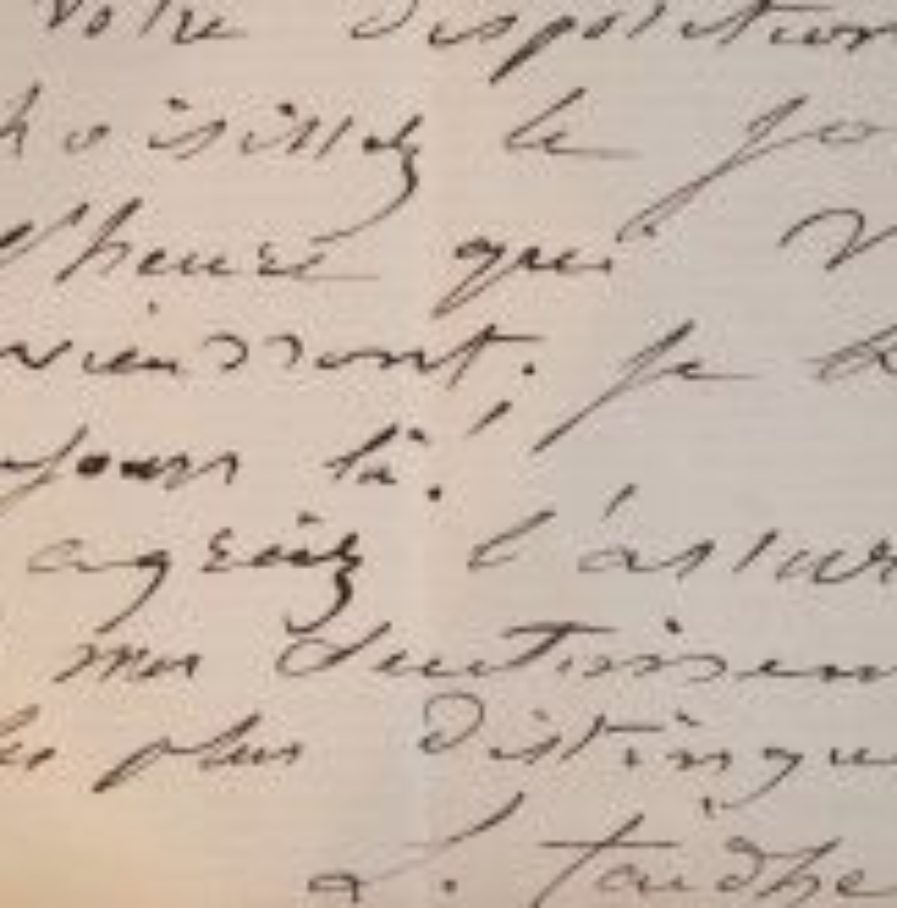 Votre disposition
hoisissez le jo
l'heure qui v
viendront. je
jours là!
agréez l'assur
mes sentimen
les plus distingu
L.